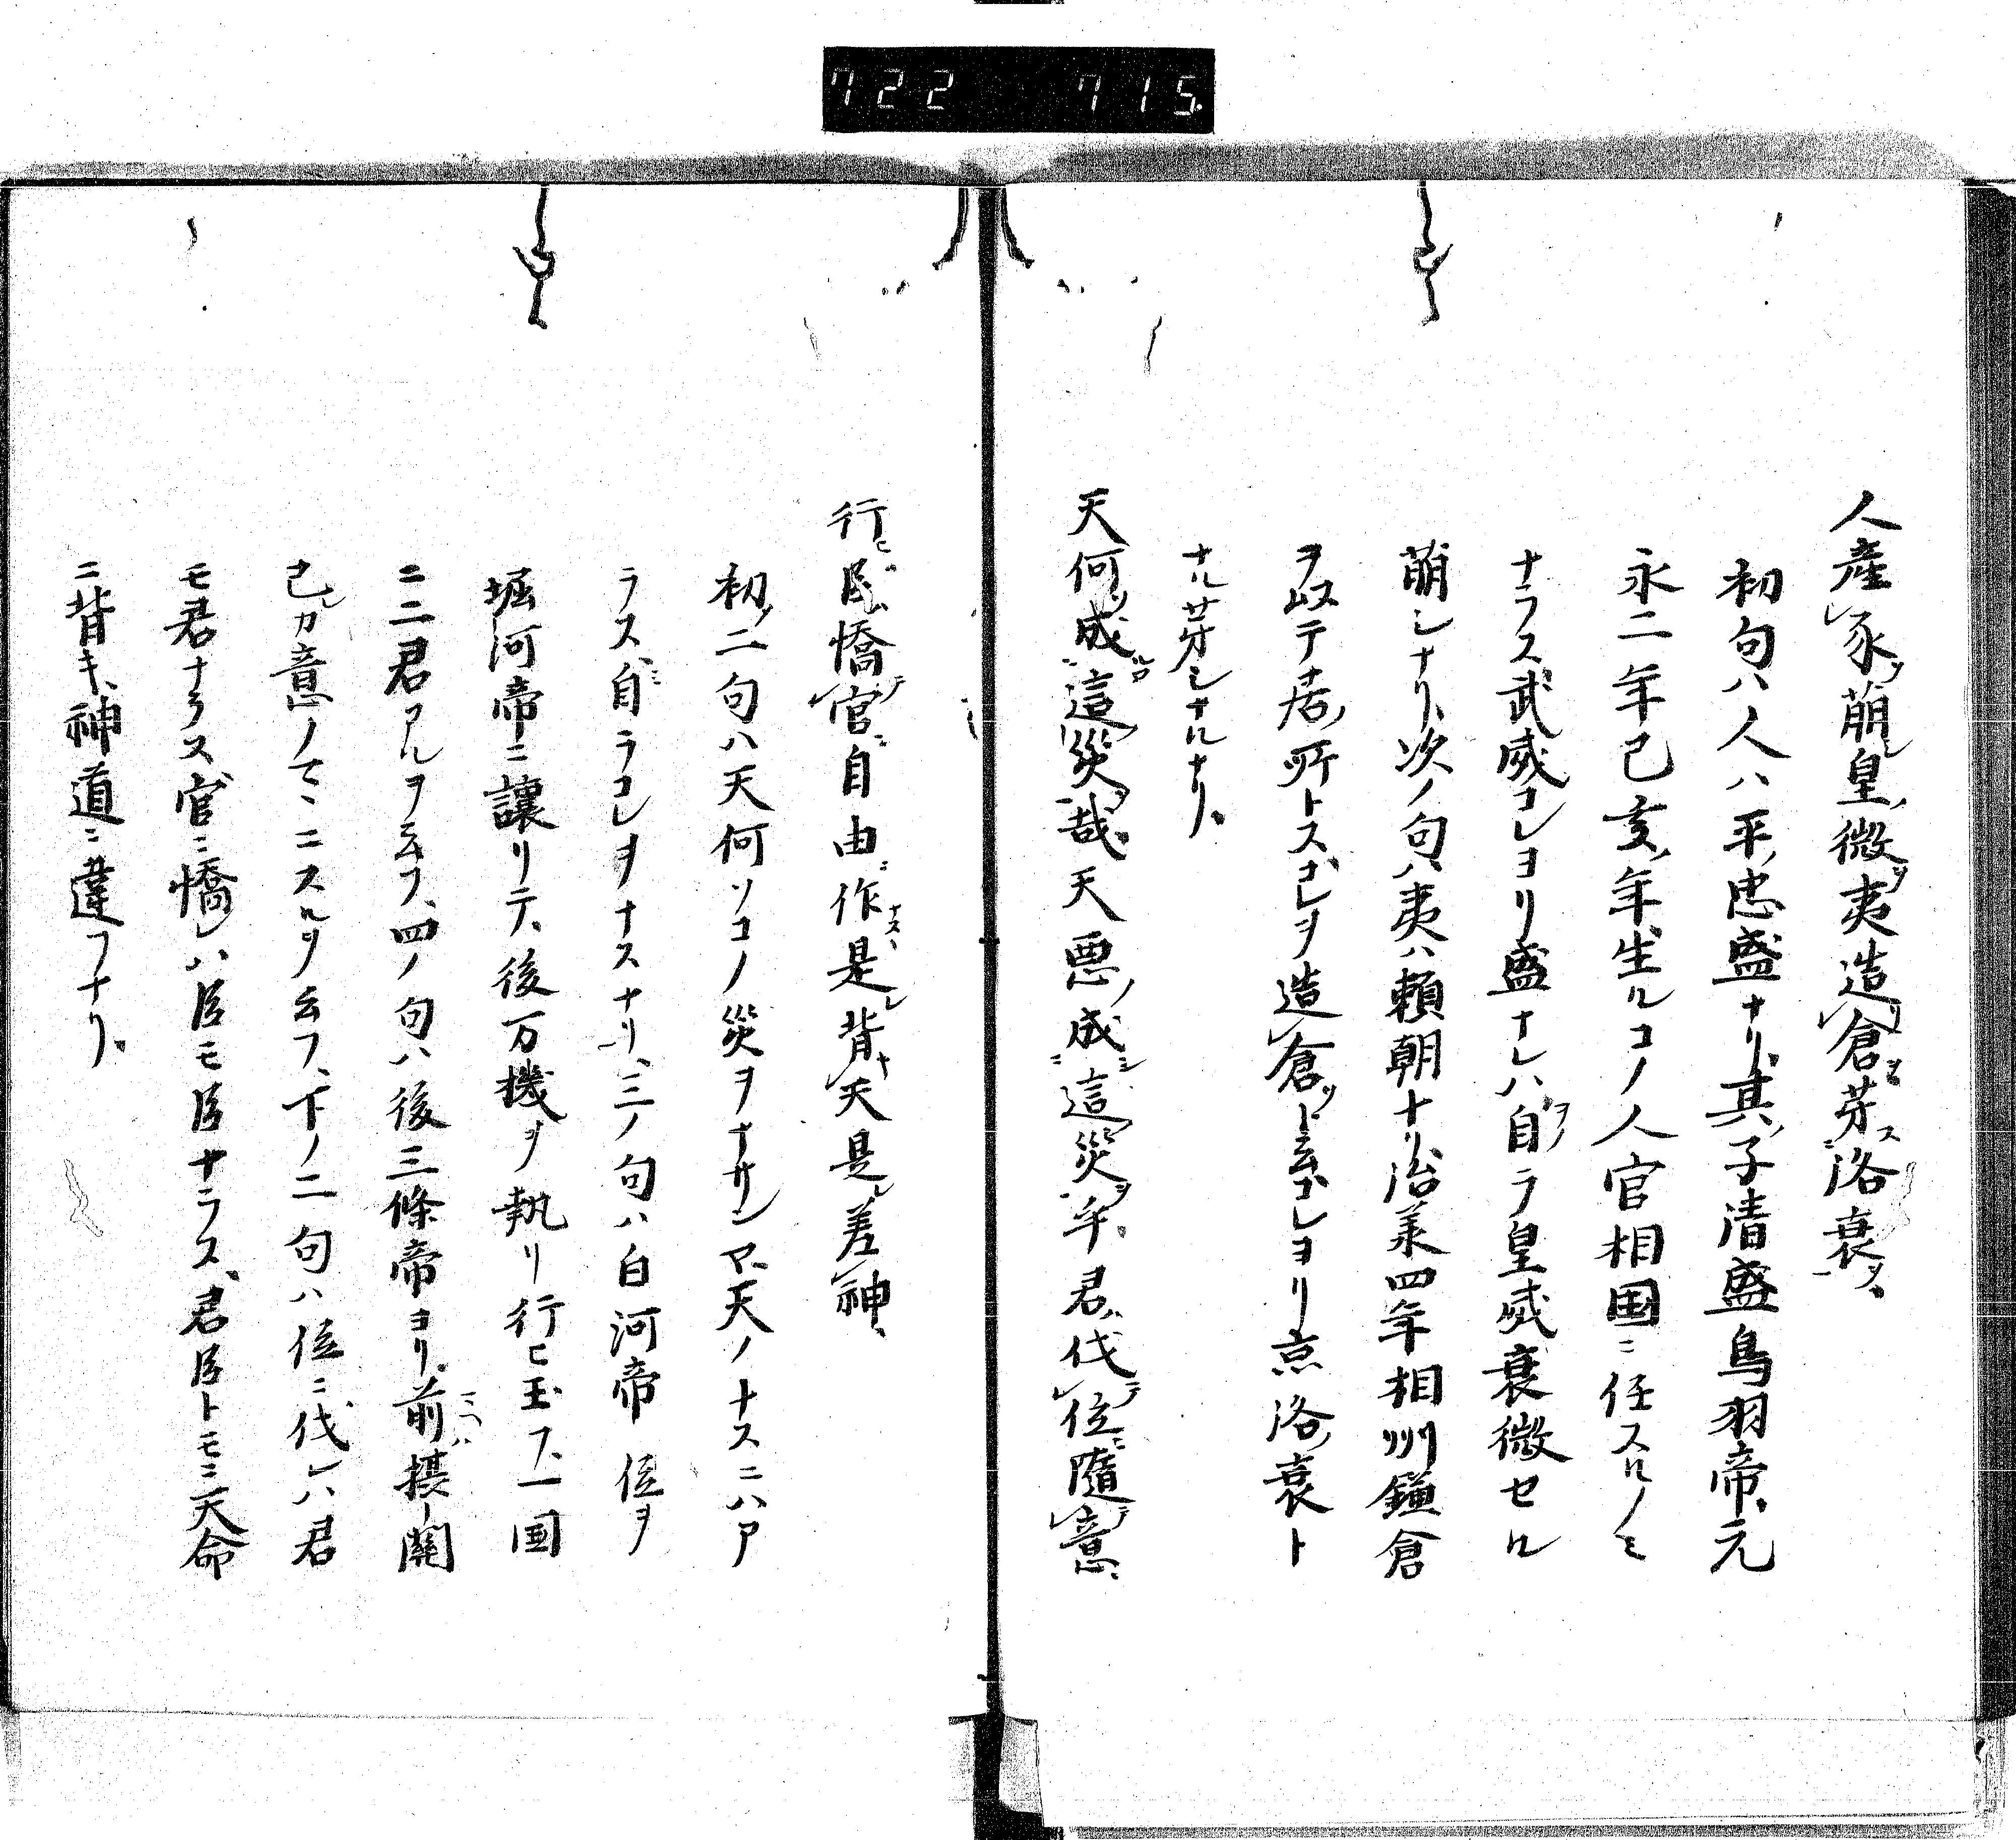 722 715.
人産豕萠皇微夷造倉芽洛衰
初句ハ人ハ平忠盛ナリ其子清盛鳥羽帝元
永二年己亥年生ルコノ人官相国ニ任スルノミ
ナラス武威コレヨリ盛ナレハ自ラ皇威衰微セル
萠シナリ次ノ句ハ夷ハ頼朝ナリ治承四年相州鎌倉
ヲ以テ居所トスコレヲ造倉ト云コレヨリ京洛衰ト
ナル芽シナルナリ
天何成這災哉天悪成這災乎君伐位隨意
行民憍官自由作是背天是差神
初ノ二句ハ天何ソコノ災ヲナサンマ天ノナスニハア
ラス自ラコレヲナスナリ三ノ句ハ白河帝位ヲ
堀河帝ニ讓リテ後万機ヲ執リ行ヒ玉フ一国
ニ二君アルヲ云フ四ノ句ハ後三條帝ヨリ前摂関
己カ意ノマヽニスルヲ云フ下ノ二句ハ位ニ伐レハ君
モ君ナラス官ニ憍レハ臣モ臣ナラス君臣トモニ天命
ニ背キ神道ニ違フナリ